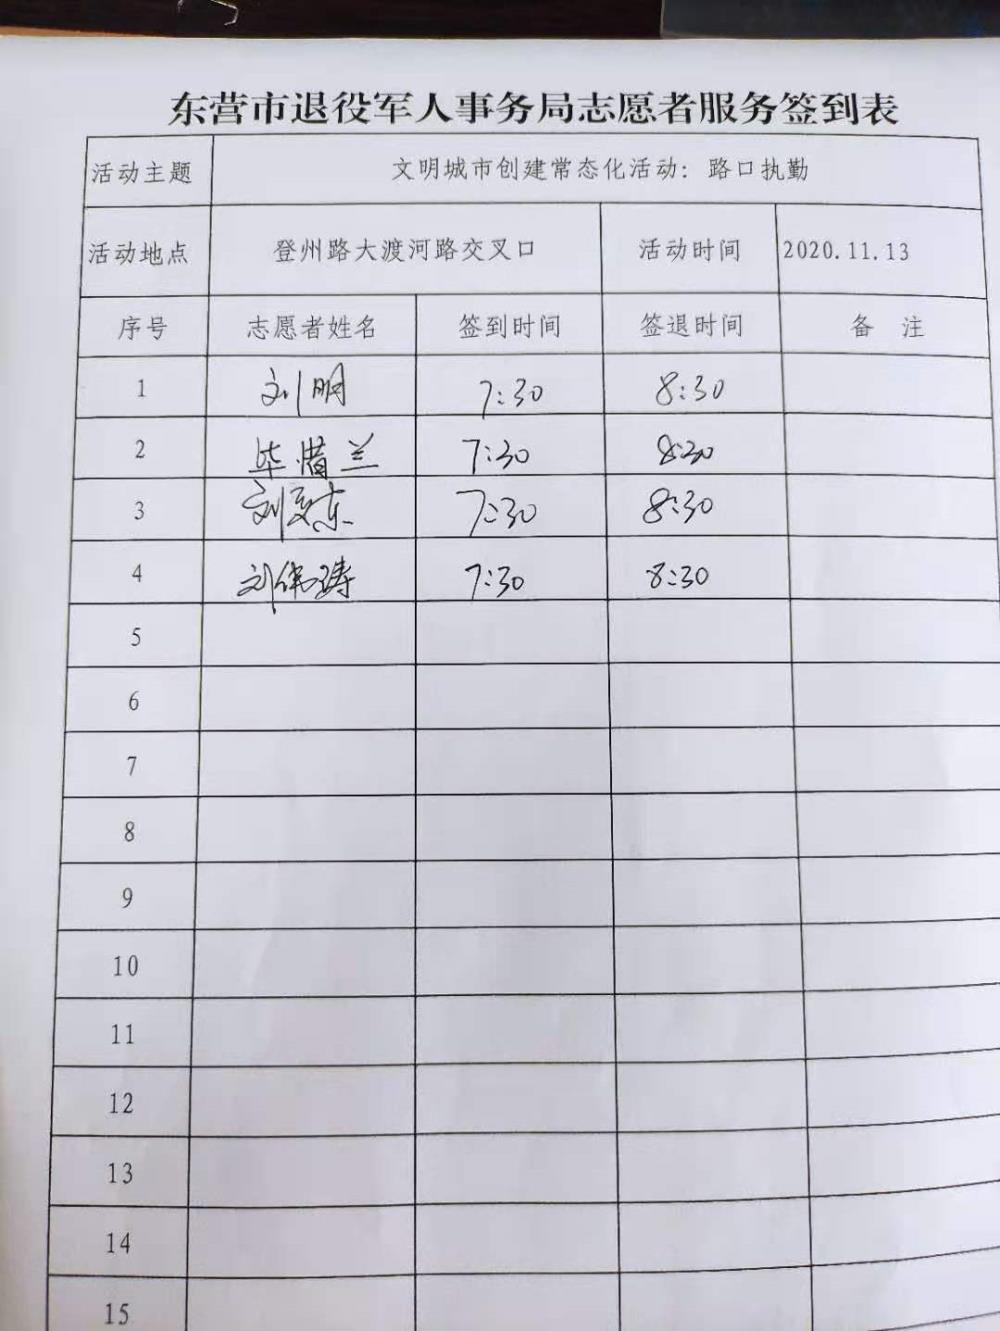 东营市退役军人事务局志愿者服务签到表
活动主题 文明城市创建常态化活动：路口执勤
活动地点 登州路大渡河路交叉口 活动时间 2020.11.13
序号 志愿者姓名 签到时间 签退时间 备 注
1 刘明 7:30 8:30
2 毕惜兰 7:30 8:30
3 刘 东 7:30 8:30
4 刘伟涛 7:30 8:30
5
6
7
8
9
10
11
12
13
14
15